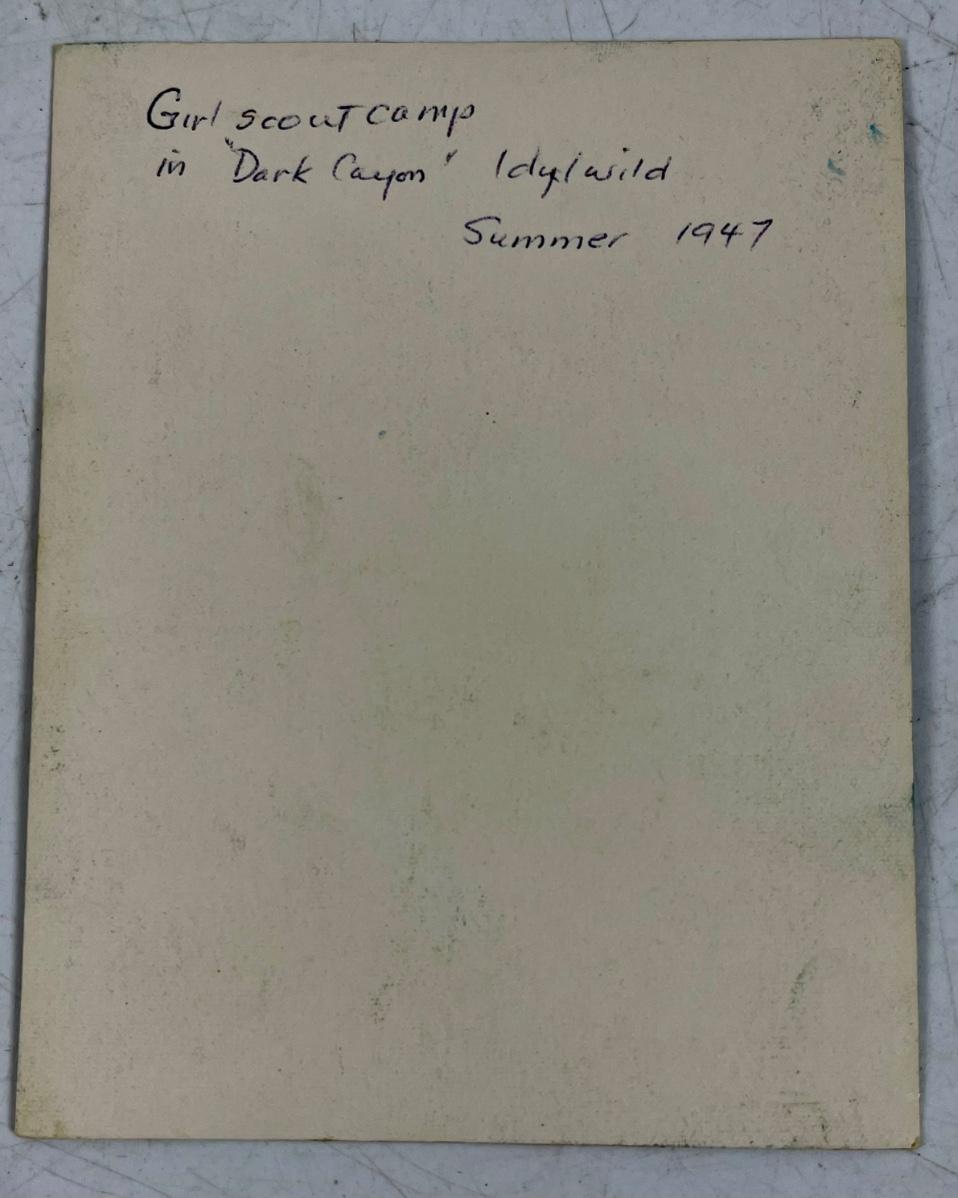 Girl scout camp
in "Dark Cayon" Idylwild
Summer 1947